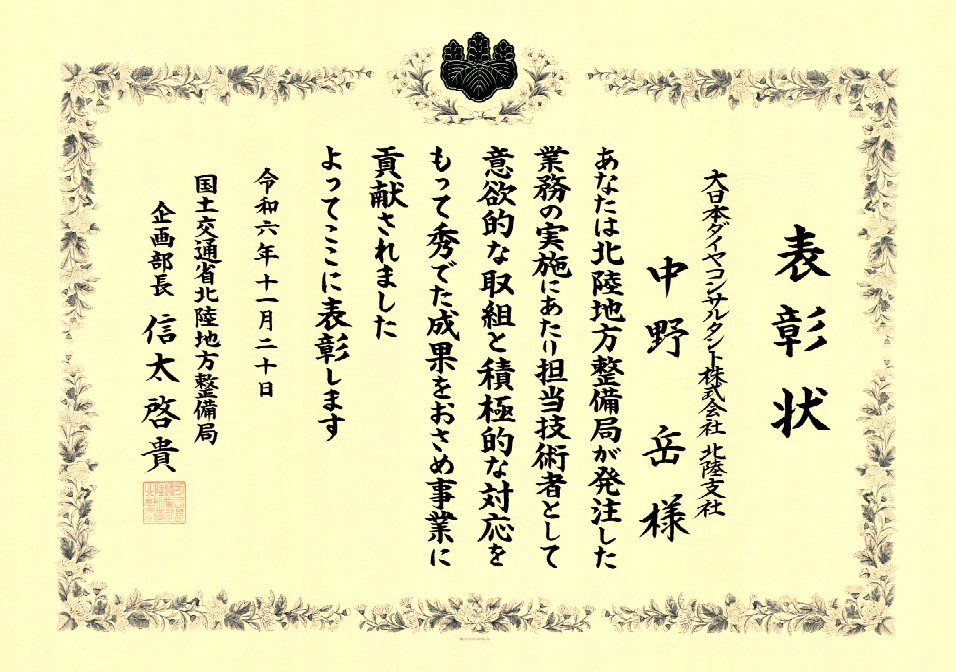 表彰状
大日本ダイヤコンサルタント株式会社 北陸支社
中野 岳 様
あなたは北陸地方整備局が発注した
業務の実施にあたり担当技術者として
意欲的な取組と積極的な対応を
もって秀でた成果をおさめ事業に
貢献されました
よってここに表彰します
令和六年十一月二十日
国土交通省北陸地方整備局
企画部長 信太啓貴